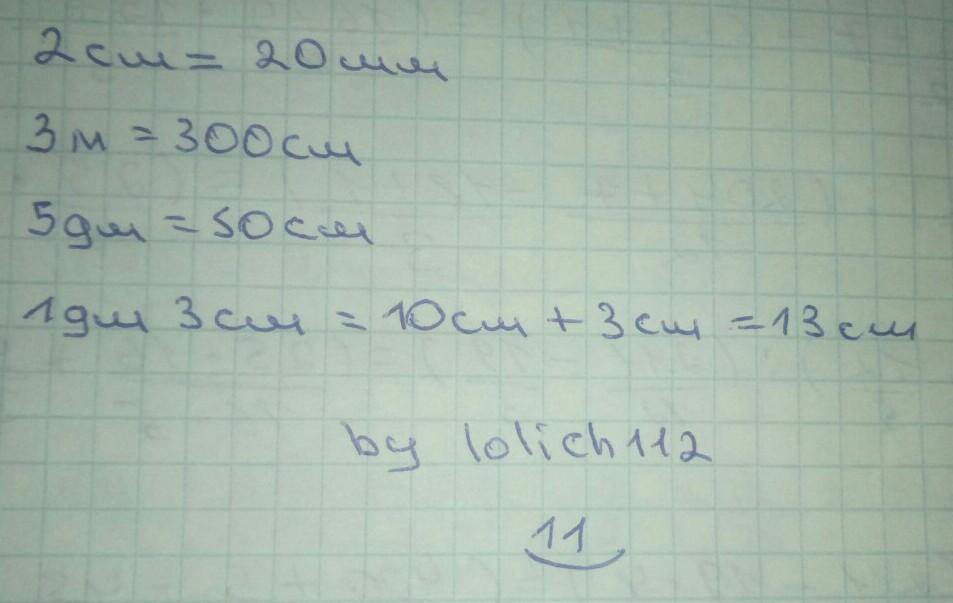 2см = 20мм
3м = 300см
5дм = 50см
1дм 3см = 10см + 3см = 13см
by lolich112
11